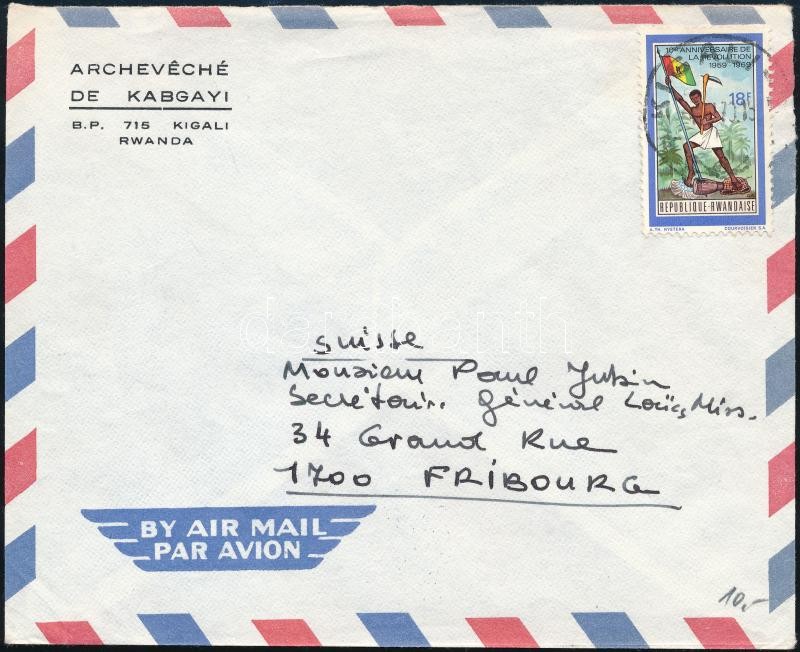 ARCHEVÊCHÉ
DE KABGAYI
B.P. 715 KIGALI
RWANDA
10e ANNIVERSAIRE DE
LA REVOLUTION
1959-1969
18F
REPUBLIQUE-RWANDAISE
COURVOISIER S.A.
Suisse
Monsieur Paul Jubin
Secrétair. Général Laïcs Miss.
34 Grand Rue
1700 FRIBOURG
BY AIR MAIL
PAR AVION
10,-